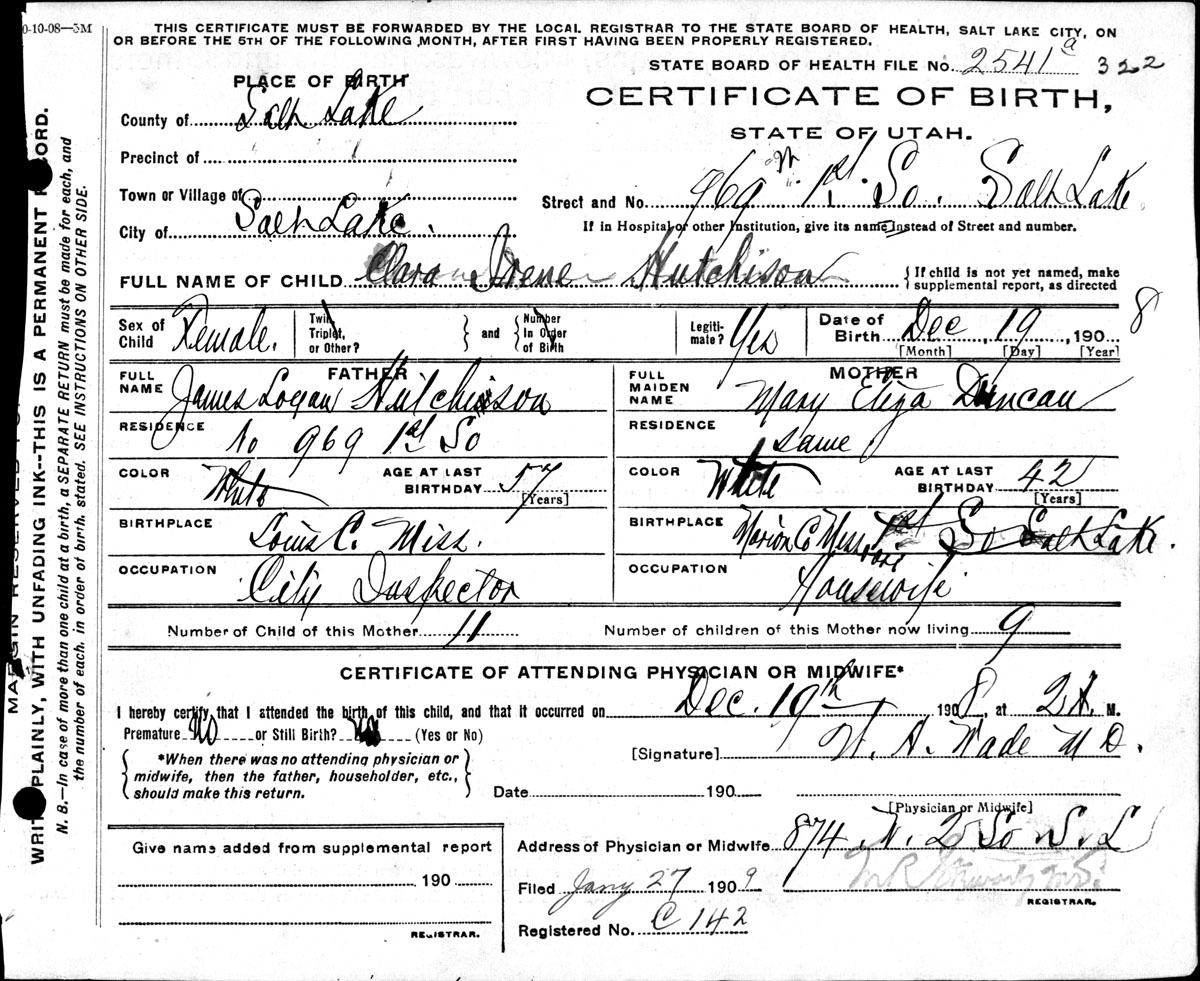 0-10-08—3M
THIS CERTIFICATE MUST BE FORWARDED BY THE LOCAL REGISTRAR TO THE STATE BOARD OF HEALTH, SALT LAKE CITY, ON
OR BEFORE THE 5TH OF THE FOLLOWING MONTH, AFTER FIRST HAVING BEEN PROPERLY REGISTERED.
STATE BOARD OF HEALTH FILE No. 2541 a 322
PLACE OF BIRTH
CERTIFICATE OF BIRTH,
STATE OF UTAH.
County of Salt Lake
Precinct of
Town or Village of
City of Salt Lake.
Street and No. 969 W. 1st. So. Salt Lake
If in Hospital or other Institution, give its name instead of Street and number.
FULL NAME OF CHILD Clara Irene Hutchison
{If child is not yet named, make
supplemental report, as directed
Sex of Child Female.
Twin, Triplet, or Other?
} and {
Number In Order of Birth
Legiti-mate? Yes
Date of Birth Dec 19, 1908
[Month] [Day] [Year]
FATHER
FULL NAME James Logan Hutchison
MOTHER
FULL MAIDEN NAME Mary Eliza Duncan
RESIDENCE No 969 1st So
RESIDENCE same
COLOR White AGE AT LAST BIRTHDAY 57 [Years]
COLOR White AGE AT LAST BIRTHDAY 42 [Years]
BIRTHPLACE Louis C. Miss.
BIRTHPLACE Marion Co Missouri 1st So Salt Lake.
OCCUPATION City Inspector
OCCUPATION Housewife
Number of Child of this Mother 11
Number of children of this Mother now living 9
CERTIFICATE OF ATTENDING PHYSICIAN OR MIDWIFE*
I hereby certify that I attended the birth of this child, and that it occurred on Dec. 19th 1908, at 2 A. M.
Premature No or Still Birth? No (Yes or No)
[Signature] W. A. Wade M D.
{*When there was no attending physician or
midwife, then the father, householder, etc.,
should make this return.}
Date 190
[Physician or Midwife]
Give name added from supplemental report
190
REGISTRAR.
Address of Physician or Midwife 874 W. 2 So S. L
Filed Jany 27 1909
REGISTRAR.
Registered No. C 142
MARGIN RESERVED
WRITE PLAINLY, WITH UNFADING INK--THIS IS A PERMANENT RECORD.
N. B.—In case of more than one child at a birth, a SEPARATE RETURN must be made for each, and
the number of each, in order of birth, stated. SEE INSTRUCTIONS ON OTHER SIDE.